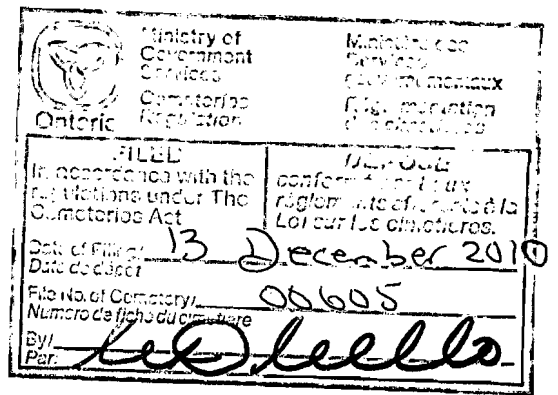 Ontario
Ministry of
Government
Services
Cemeteries
Regulation
Ministère des
Services
gouvernementaux
Réglementation
FILED
In accordance with the
regulations under The
Cemeteries Act
DÉPOSÉ
conformément aux
règlements afférents à la
Loi sur les cimetières.
Date of Filing/ 13 December 2010
Date de dépôt
File No. of Cemetery/ 00605
Numéro de fiche du cimetière
By/
Par: